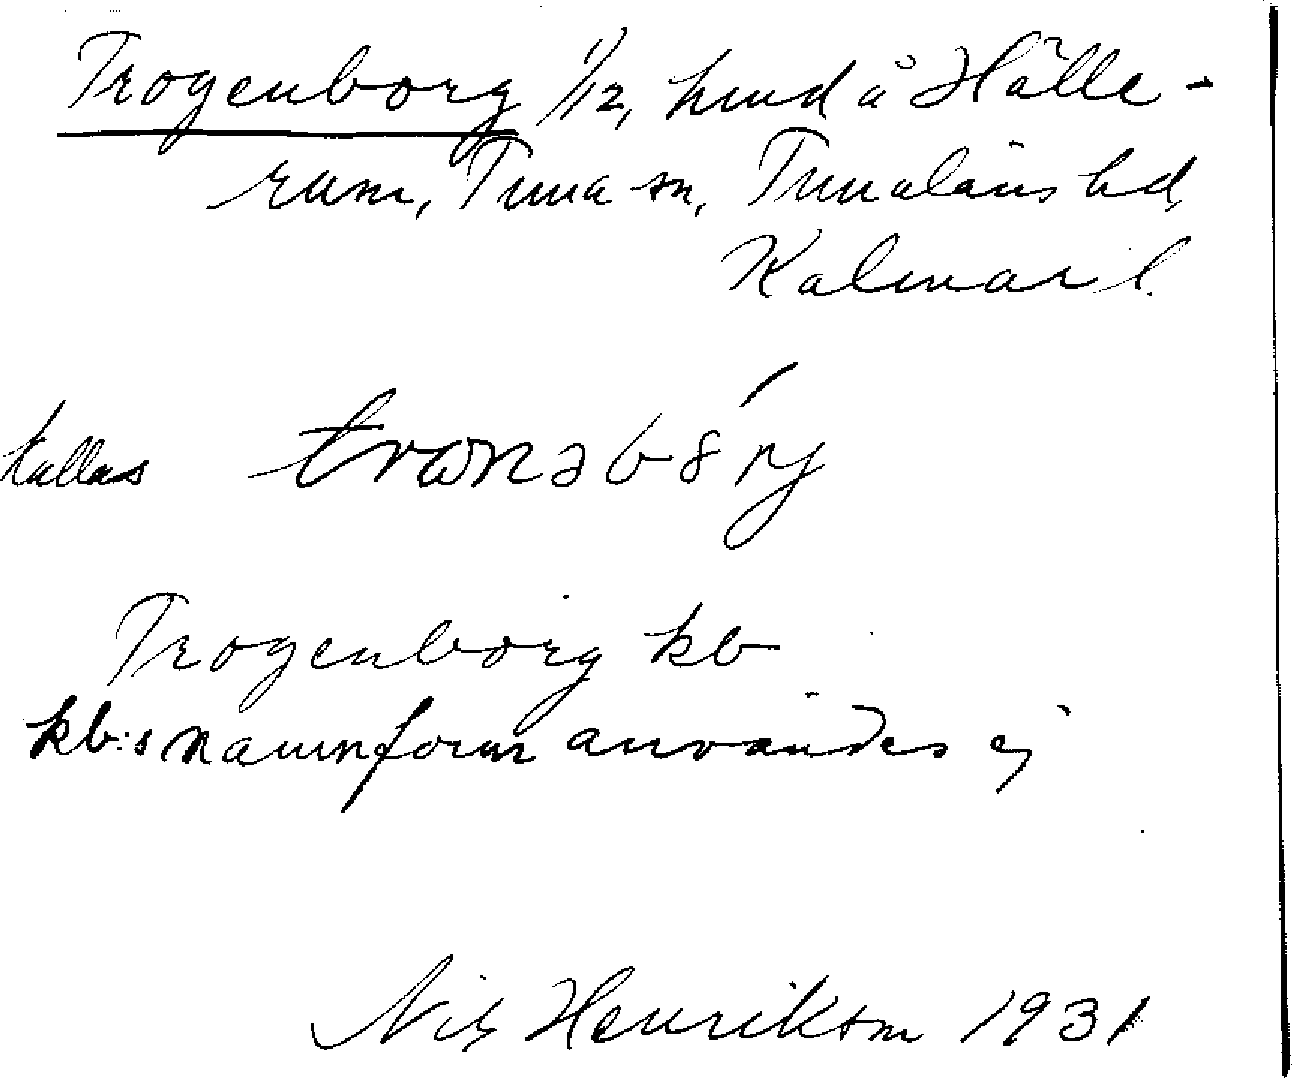 Trogenborg 1/12, hmd å Hälle-
rum, Tuna sn, Tunaläns hd,
Kalmar l.
kallas
Trogenborg kb
kb:s namnform användes ej
Nils Henrikson 1931